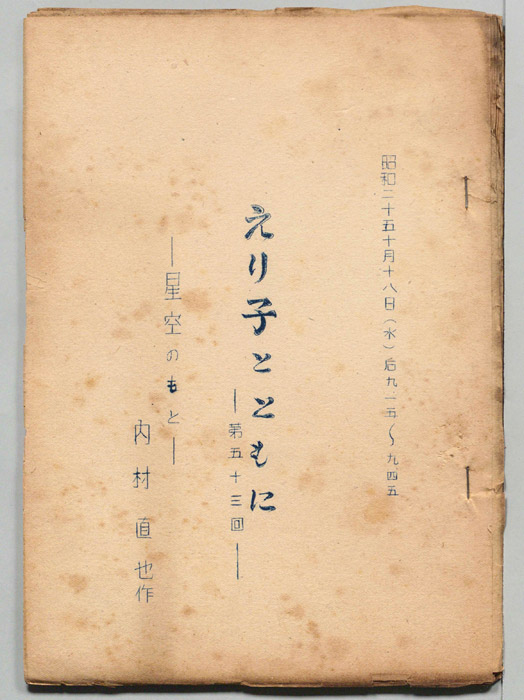 昭和二十五十月十八日（水）后九・一五〜九・四五
えり子とともに
―第五十三回―
―星空のもと―
内村直也作